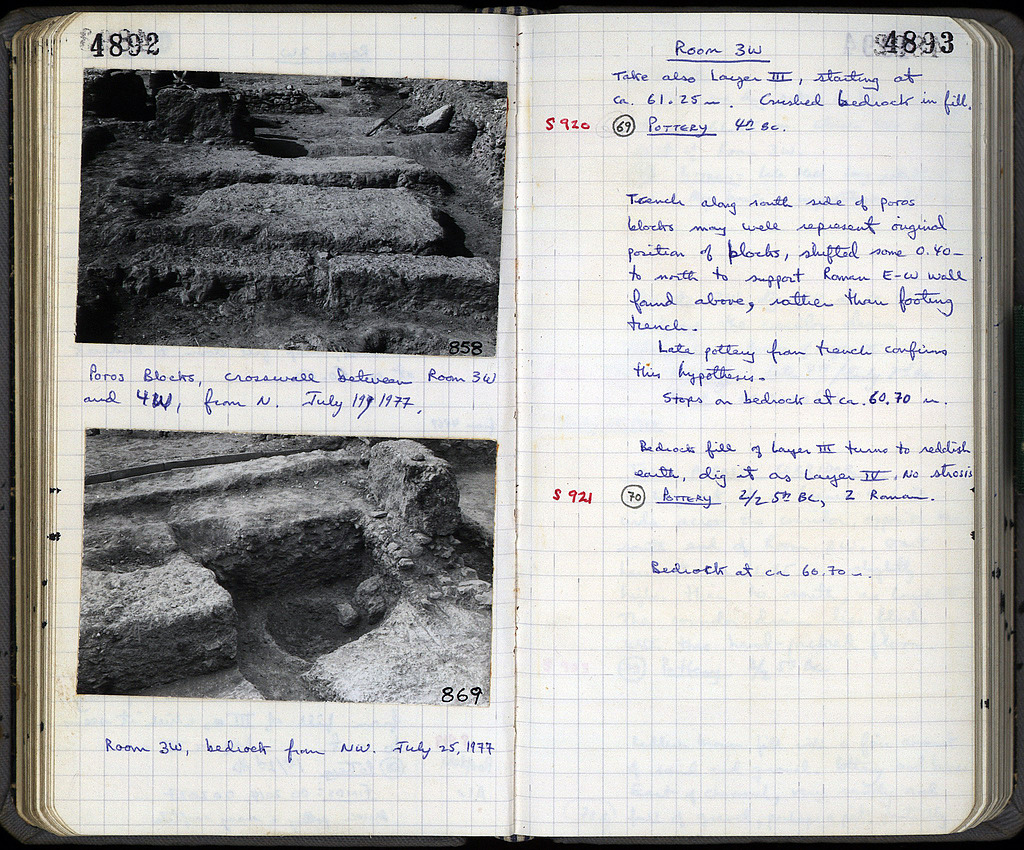 4892
858
Poros Blocks, crosswall between Room 3W
and 4W, from N. July 19 1977.
869
Room 3W, bedrock from NW. July 25, 1977
4893
Room 3W
Take also Layer III, starting at
ca. 61.25 m. Crushed bedrock in fill.
S 920 69 POTTERY 4th BC.
Trench along south side of poros
blocks may well represent original
position of blocks, shifted some 0.40-
to north to support Roman E-W wall
found above, rather than footing
trench.
Late pottery from trench confirms
this hypothesis.
Stops on bedrock at ca. 60.70 m.
Bedrock fill of Layer III turns to reddish
earth, dig it as Layer IV. No strosis
S 921 70 POTTERY 2/2 5th BC, 2 Roman.
Bedrock at ca 60.70 m.